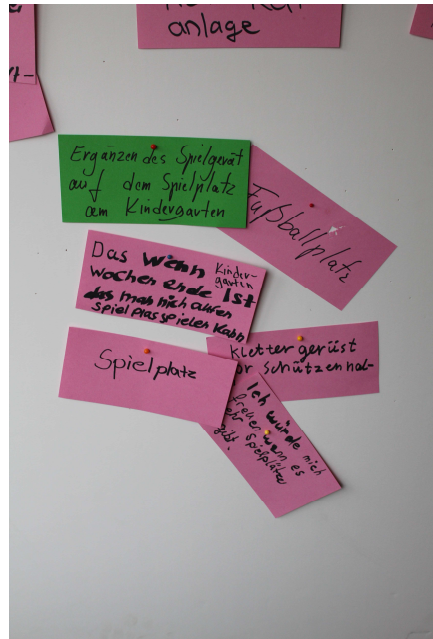 anlage
Ergänzendes Spielgerät
auf dem Spielplatz
am Kindergarten
Fußballplatz
Das wenn Kinder-
garten
wochen ende Ist
das mah nich aufen
spiel plas spielen kahn
Kletter gerüst
or schützenhal-
Spielplatz
Ich würde mich
freuer wenn es
mehr spielplätze
gibt.